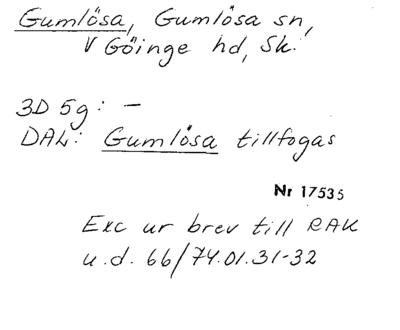 Gumlösa, Gumlösa sn,
V Göinge hd, Sk.
3D 5g: -
DAL: Gumlösa tillfogas
Nr 17535
Exc ur brev till RAK
u.d. 66/74.01.31-32